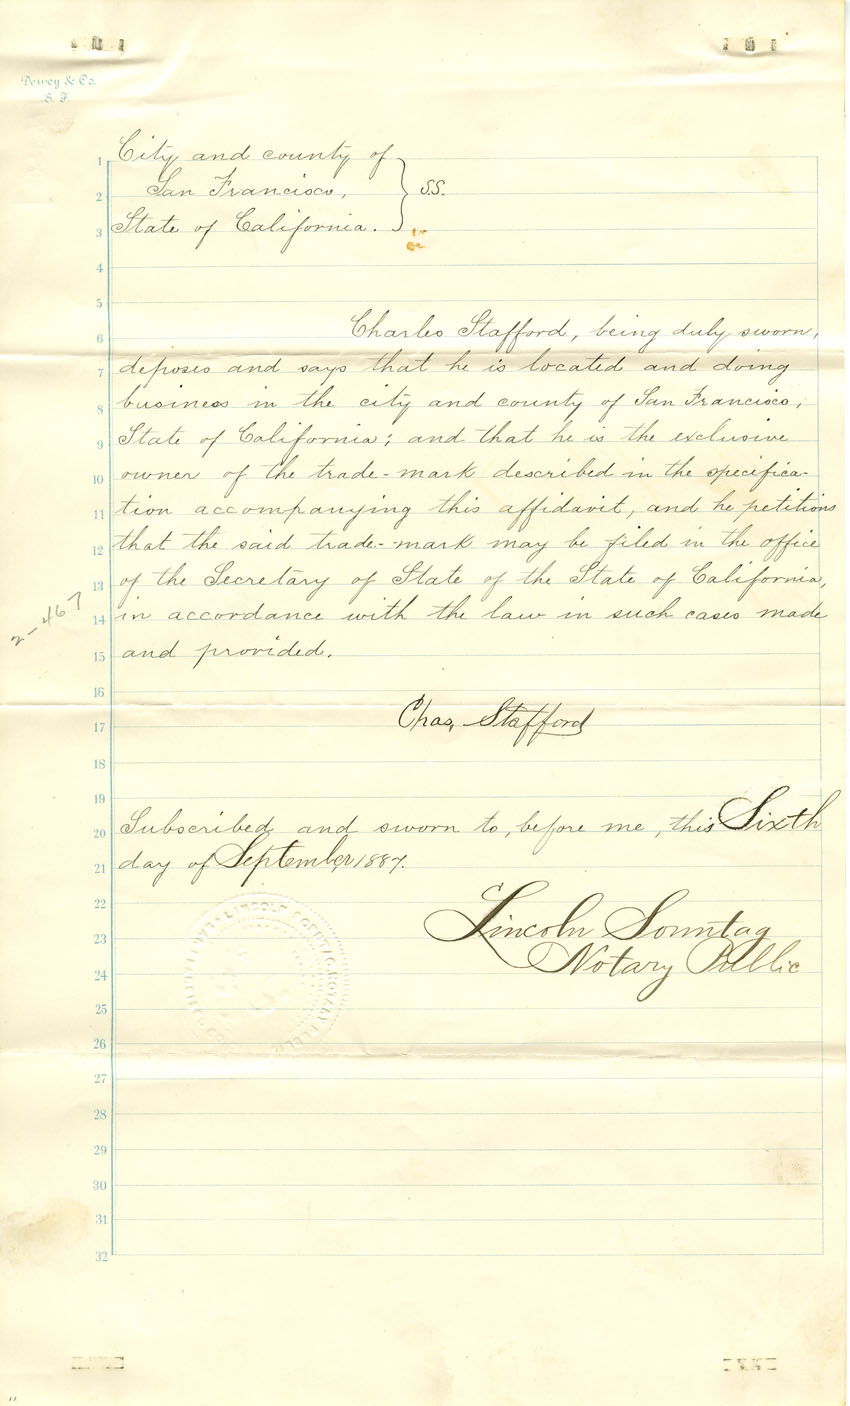 Dewey & Co.
S. F.
City and county of
San Francisco, } SS.
State of California.
Charles Stafford, being duly sworn,
deposes and says that he is located and doing
business in the city and county of San Francisco,
State of California; and that he is the exclusive
owner of the trade-mark described in the specifica-
tion accompanying this affidavit, and he petitions
that the said trade-mark may be filed in the office
of the Secretary of State of the State of California,
in accordance with the law in such cases made
and provided.
2-467
Chas. Stafford
Subscribed and sworn to, before me, this Sixth
day of September 1887.
Lincoln Sonntag
Notary Public
1
2
3
4
5
6
7
8
9
10
11
12
13
14
15
16
17
18
19
20
21
22
23
24
25
26
27
28
29
30
31
32